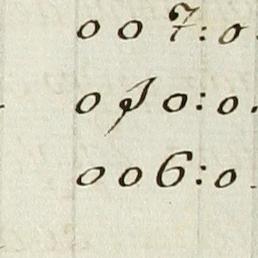 0 0 7:0.
0 1 0:0.
0 0 6:0.